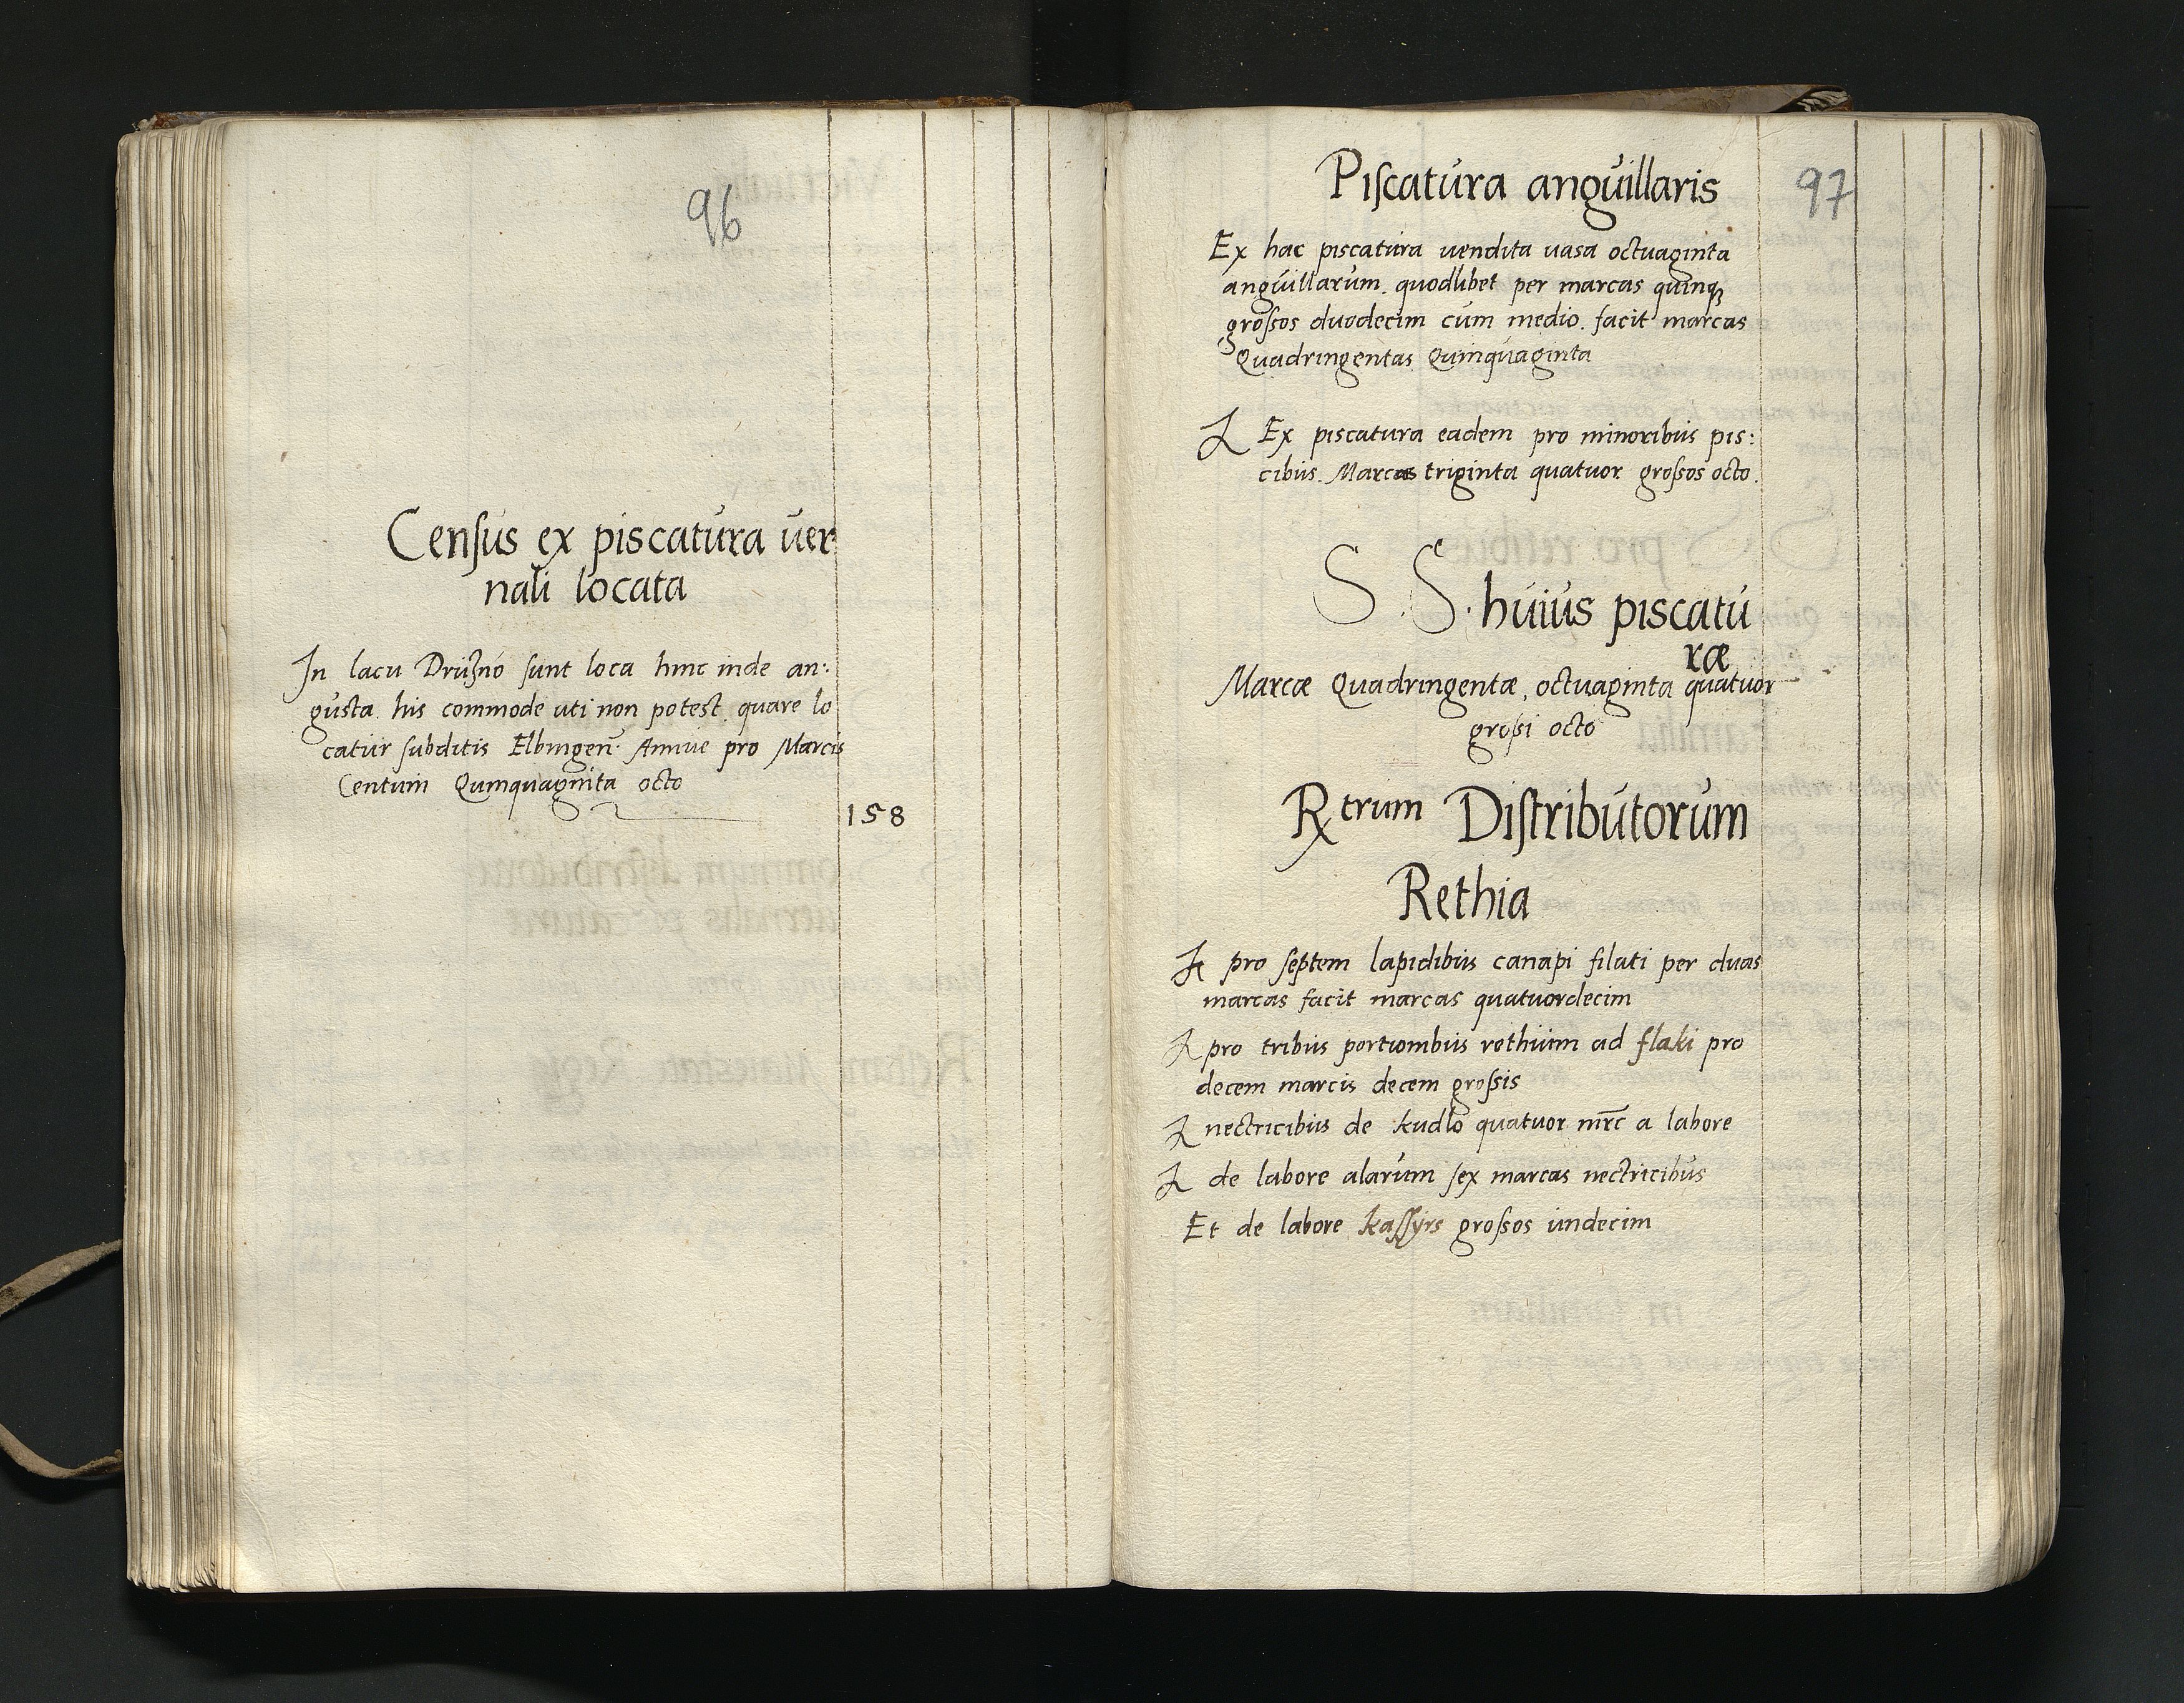 96
Census ex piscatura ver
nali locata
In lacu Druzno sunt loca hinc inde an:
gusta. his commode uti non potest. quare lo
catur subditis Elbingen̄. Annue pro Marcis
Centum Quinquaginta octo
158
Piscatura anguillaris
97
Ex hac piscatura vendita vasa octuaginta
anguillarum. quodlibet per marcas quinqꝫ
grossos duodecim cum medio. facit marcas
Quadringentas Quinquaginta
Ex piscatura eadem pro minoribus pis:
cibus. Marcas triginta quatuor grossos octo.
S. S. huius piscatu
ræ
Marcæ Quadringentæ, octuaginta quatuor
grossi octo
Rxtrum Distributorum
Rethia
It pro septem lapidibus canapi filati per duas
marcas facit marcas quatuordecim
It pro tribus portionibus rethium ad flaki pro
decem marcis decem grossis
It nectricibus de kudlo quatuor mrc̄ a labore
It de labore alarum sex marcas nectricibus
Et de labore kassyrs grossos undecim